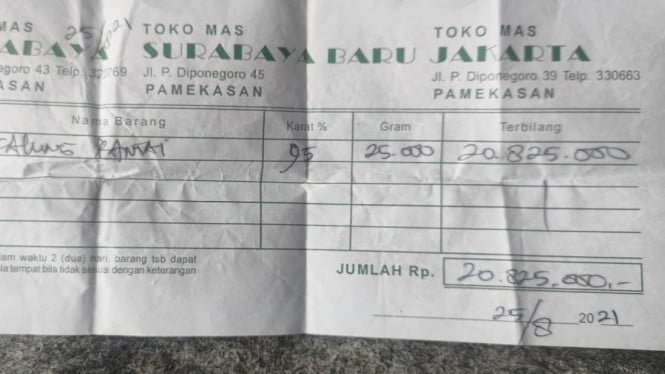 MAS TOKO MAS TOKO MAS
25/8 21
RABAYA SURABAYA BARU JAKARTA
negoro 43 Telp. Jl. P. Diponegoro 45 Jl. P. Diponegoro 39 Telp. 330663
KASAN PAMEKASAN PAMEKASAN
Nama Barang Karat % Gram Terbilang
95 25.000 20.825.000
am waktu 2 (dua) hari, barang tsb dapat
ila tempat bila tidak sesuai dengan keterangan
JUMLAH Rp. 20.825.000,-
25/8 2021